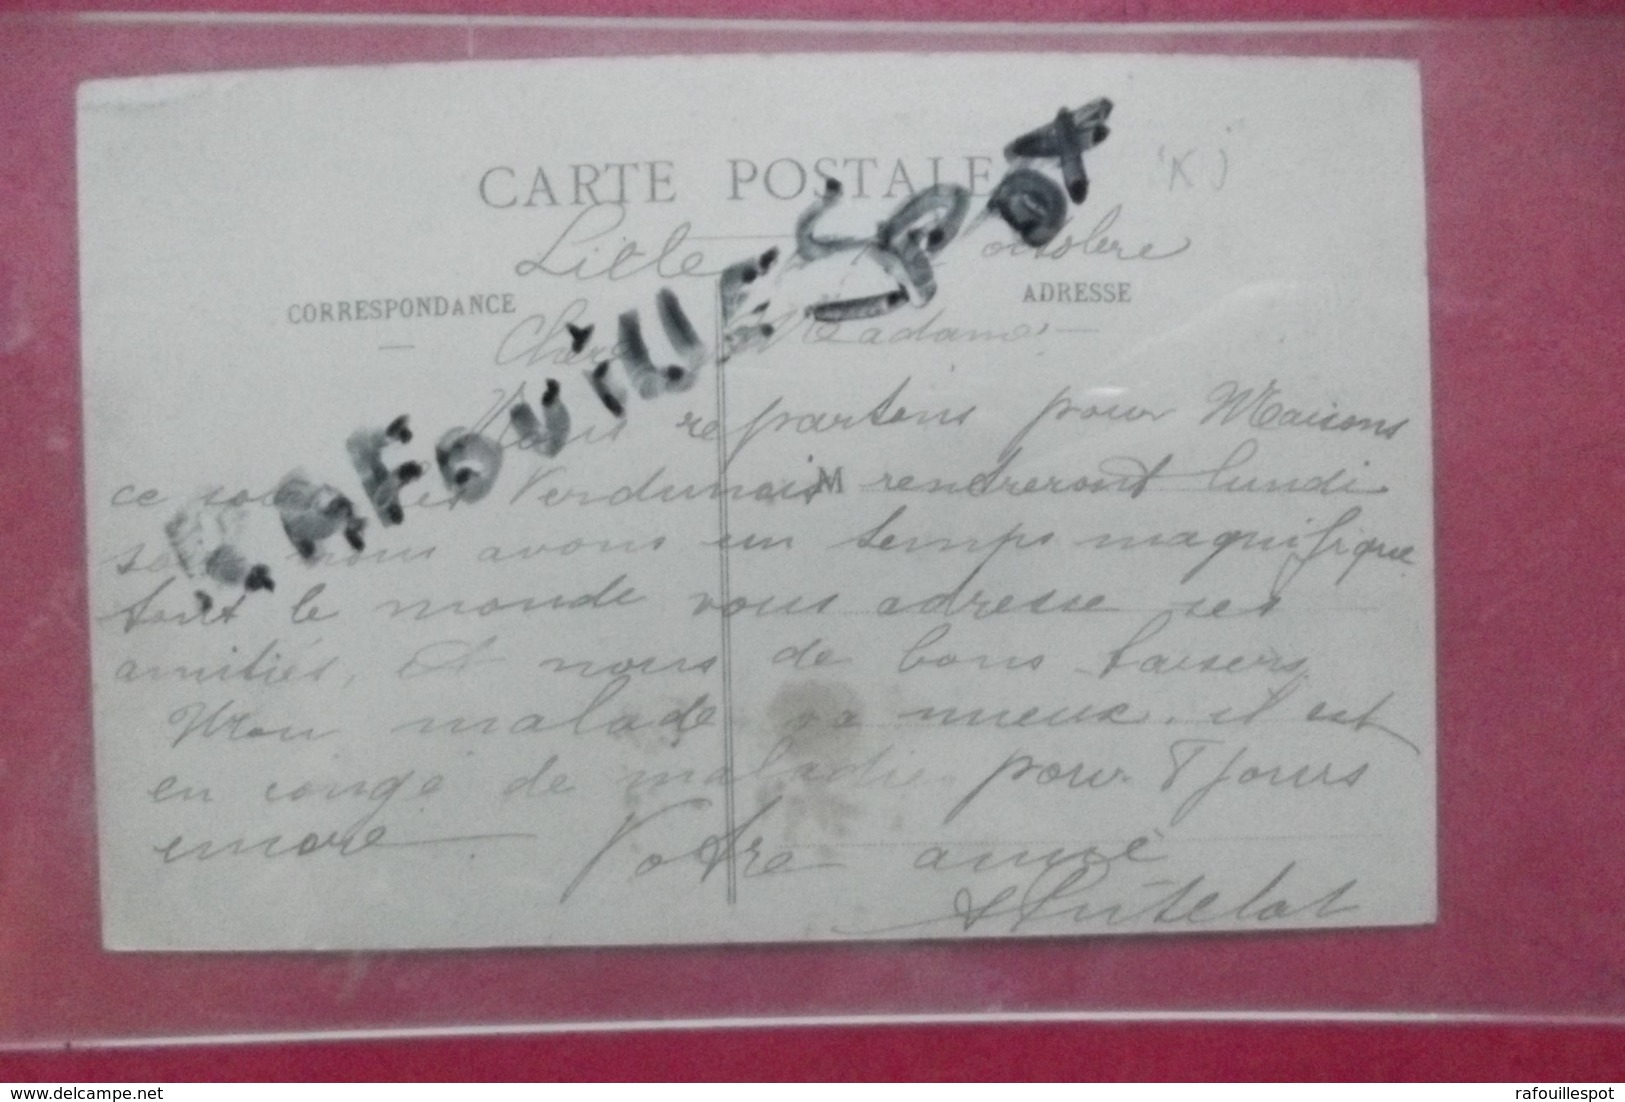 CARTE POSTALE
(K)
Lille octobre
CORRESPONDANCE
ADRESSE
RAFOUILLESPOT
Chère Madame
Nous repartons pour Maisons
ce soir les Verdunois rentreront lundi
M
nous avons un temps magnifique
tout le monde vous adresse ses
amitiés, et nous de bons baisers
Mon malade va mieux, il est
en congé de maladie pour 8 jours
encore Votre amie
delcampe.net
rafouillespot